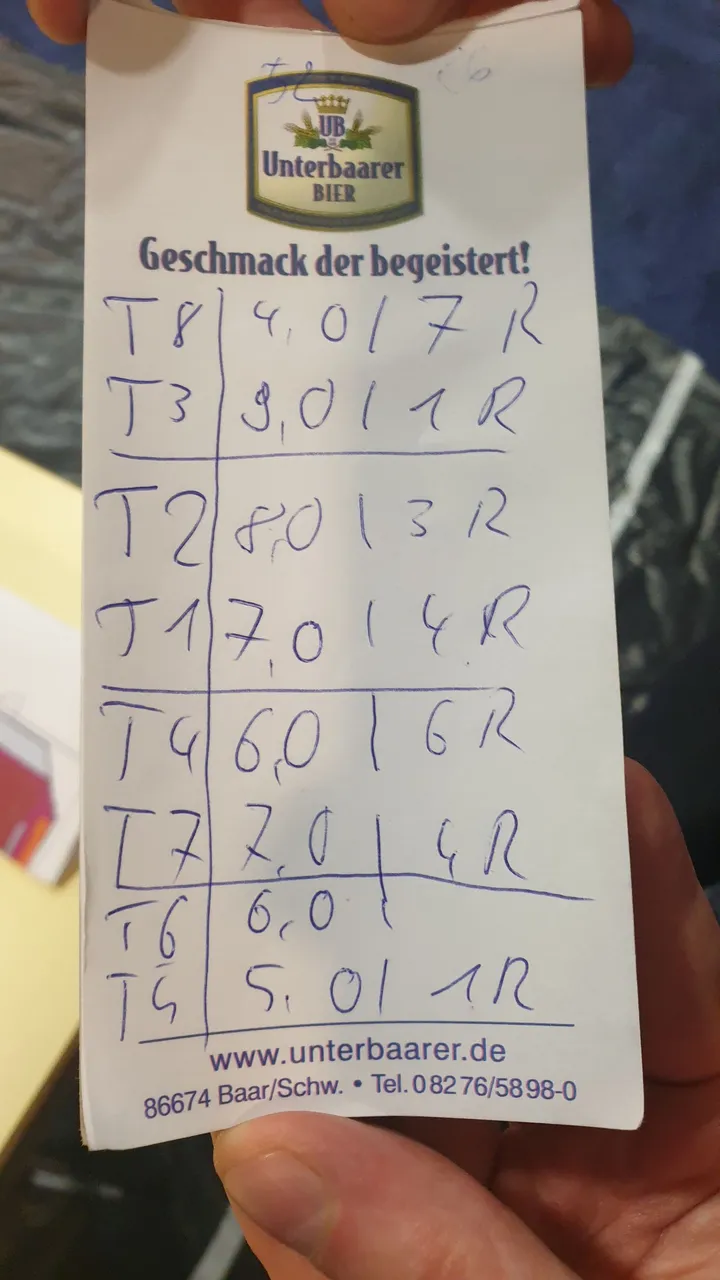 UB
Unterbaarer
BIER
Geschmack der begeistert!
T8 | 4,0 | 7 R
T3 | 9,0 | 1 R
T2 | 8,0 | 3 R
T1 | 7,0 | 4 R
T4 | 6,0 | 6 R
T7 | 7,0 | 4 R
T6 | 6,0 |
T5 | 5,0 | 1 R
www.unterbaarer.de
86674 Baar/Schw. • Tel. 0 82 76/58 98-0